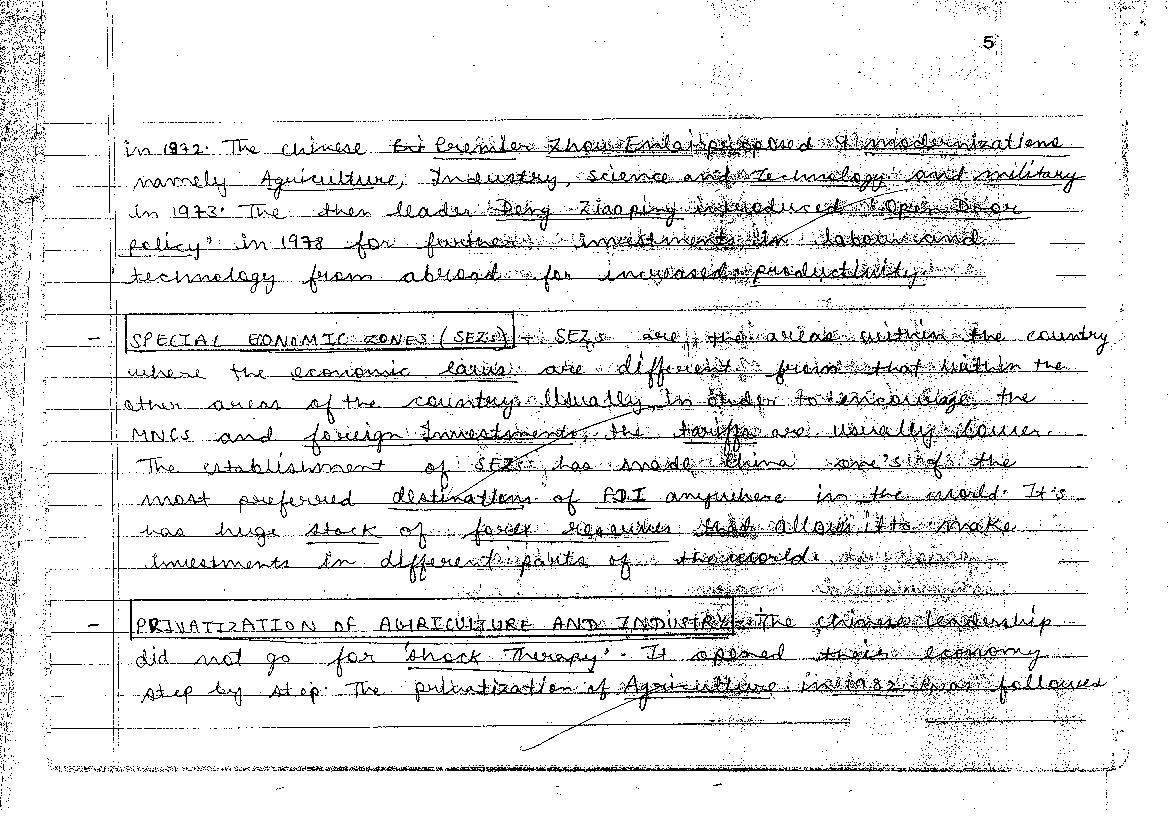 5
in 1972. The chinese Premier Zhou Enlai proposed 4 modernizations
namely Agriculture, Industry, Science and Technology and military
in 1973. The then leader Deng Ziaoping introduced 'Open Door
policy' in 1978 for further investments in labour and
technology from abroad for increased productivity.
- SPECIAL EONOMIC ZONES (SEZs) - SEZs are the areas within the country
where the economic laws are different from that within the
other areas of the country. Usually in order to encourage the
MNCs and foreign Investments, the tariffs are usually lower.
The establishment of SEZs has made China one's of the
most preferred destinations of FDI anywhere in the world. It's
has huge stock of forex reserves that allows it to make
investments in different parts of the world.
- PRIVATIZATION OF AGRICULTURE AND INDUSTRY - The chinese leadership
did not go for 'Shock Therapy'. It opened their economy
step by step. The privatization of Agriculture in 1982 was followed